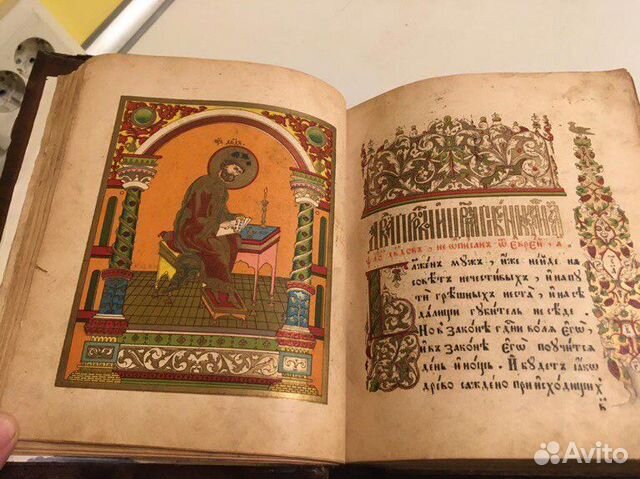 не ѡписанъ ѿ еврей · а
Блаженъ мꙋжъ, иже нейде на
совѣтъ нечестивыхъ, и напꙋ
ти грѣшныхъ неста, и насѣ
далищи гꙋбитель не сѣде
Но в законѣ гд҃ни волѧ егѡ,
и в законѣ егѡ поꙋчитсѧ
день и нощь. И бꙋдетъ ꙗкѡ
древо саждено при исходищихъ
Avito